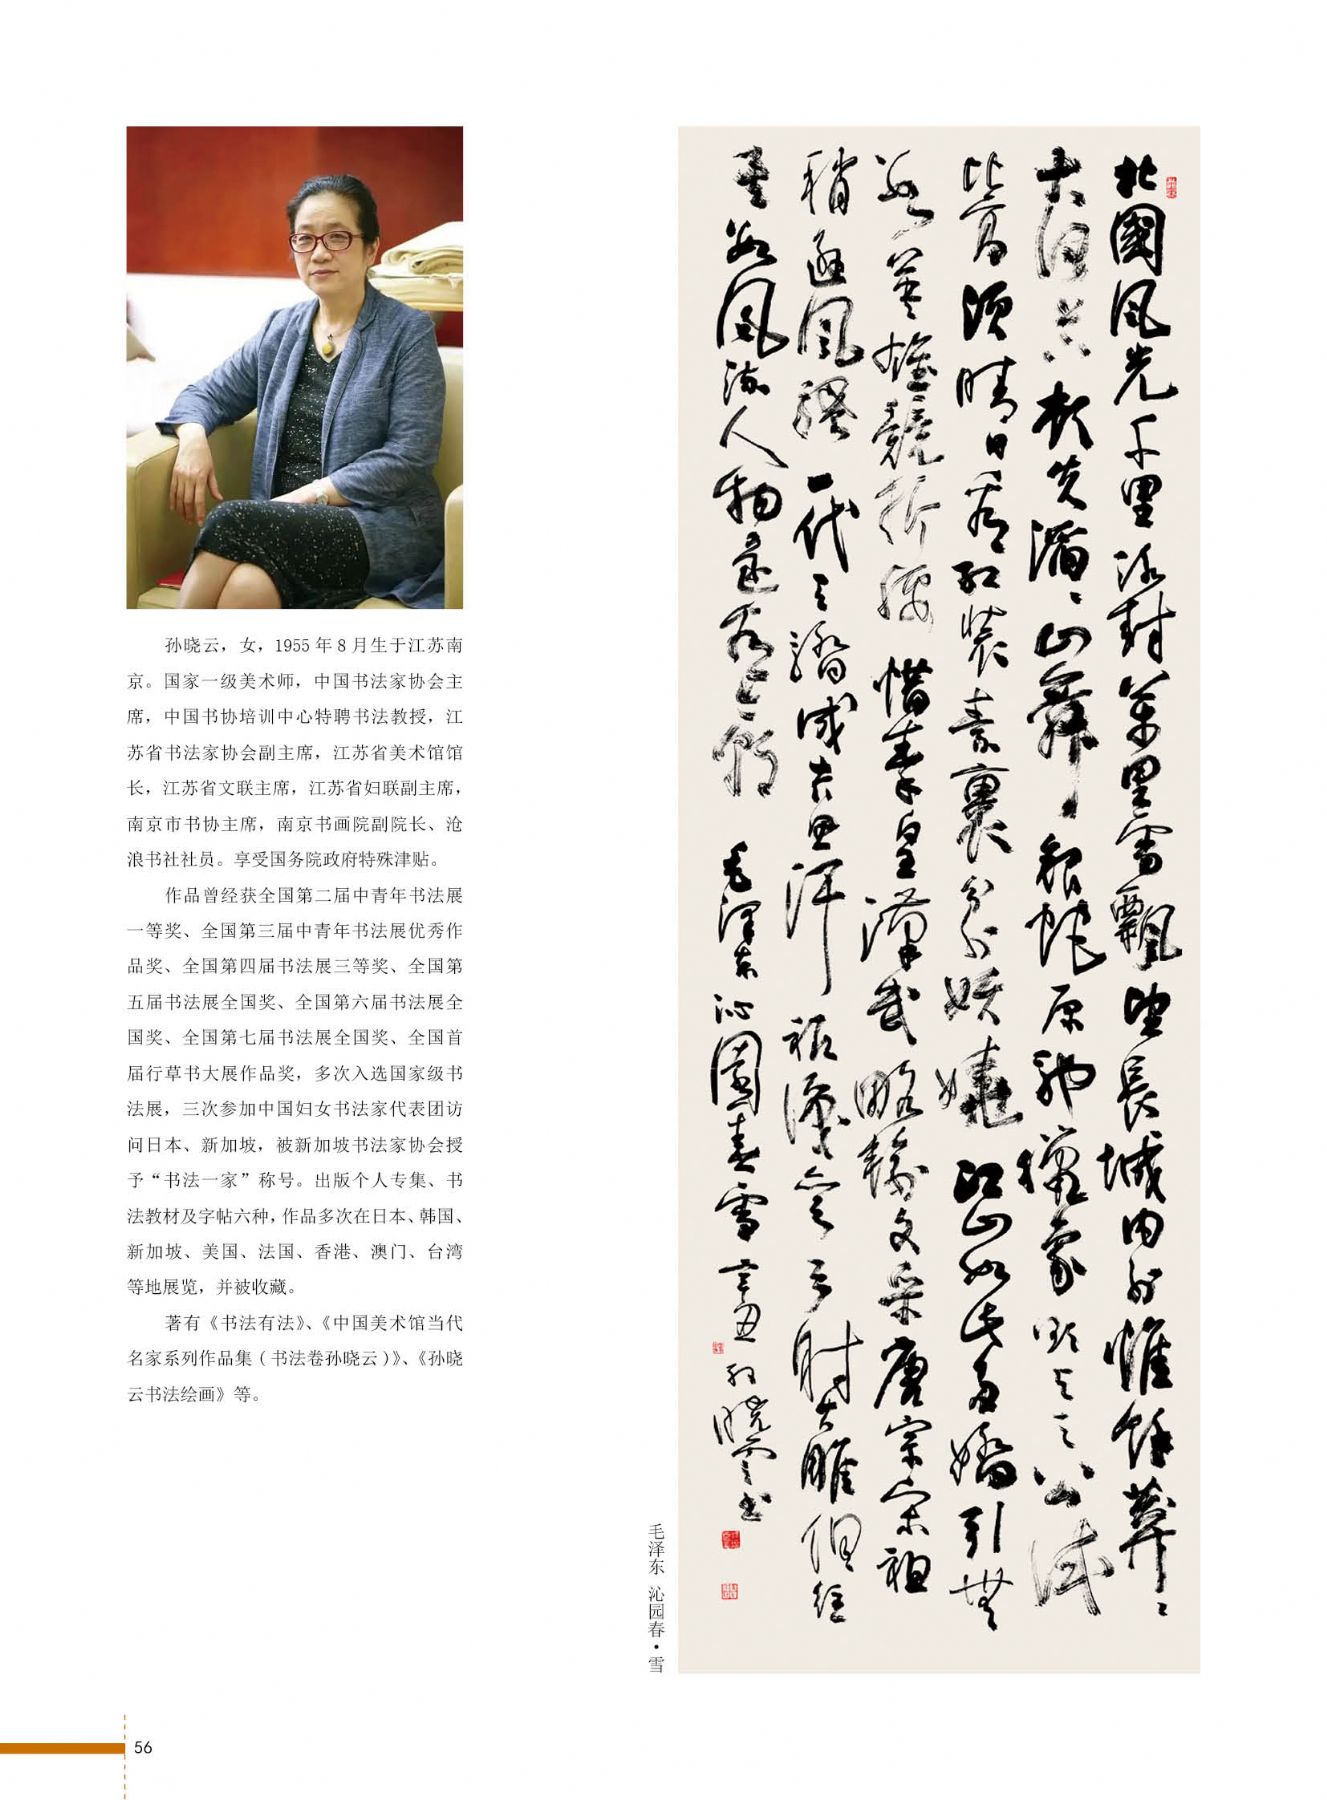 孙晓云，女，1955年8月生于江苏南
京。国家一级美术师，中国书法家协会主
席，中国书协培训中心特聘书法教授，江
苏省书法家协会副主席，江苏省美术馆馆
长，江苏省文联主席，江苏省妇联副主席，
南京市书协主席，南京书画院副院长、沧
浪书社社员。享受国务院政府特殊津贴。
作品曾经获全国第二届中青年书法展
一等奖、全国第三届中青年书法展优秀作
品奖、全国第四届书法展三等奖、全国第
五届书法展全国奖、全国第六届书法展全
国奖、全国第七届书法展全国奖、全国首
届行草书大展作品奖，多次入选国家级书
法展，三次参加中国妇女书法家代表团访
问日本、新加坡，被新加坡书法家协会授
予“书法一家”称号。出版个人专集、书
法教材及字帖六种，作品多次在日本、韩国、
新加坡、美国、法国、香港、澳门、台湾
等地展览，并被收藏。
著有《书法有法》、《中国美术馆当代
名家系列作品集（书法卷孙晓云）》、《孙晓
云书法绘画》等。
北國風光千里冰封萬里雪飄望長城内外惟餘莽莽
大河上下頓失滔滔山舞銀蛇原馳蠟象欲與天公試
比高須晴日看紅裝素裹分外妖嬈江山如此多嬌引無
數英雄競折腰惜秦皇漢武略輸文采唐宗宋祖
稍遜風騷一代天驕成吉思汗祇識彎弓射大雕俱往
矣數風流人物還看今朝 毛澤東沁園春雪 辛丑 孫曉雲書
毛泽东 沁园春·雪
56